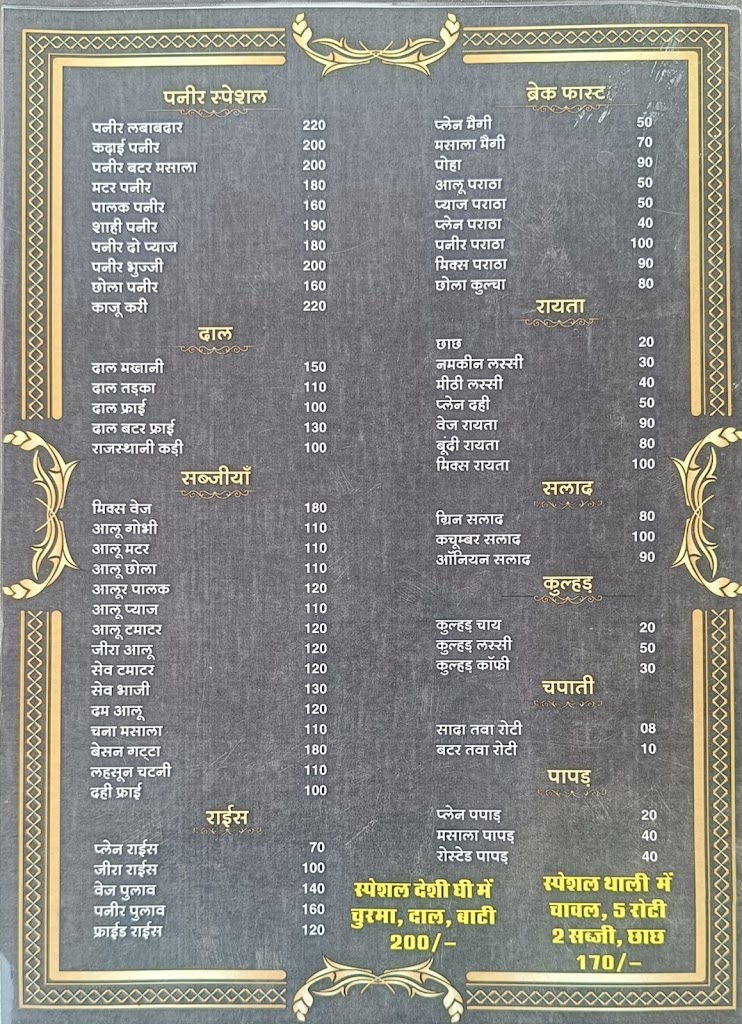 पनीर स्पेशल
पनीर लबाबदार 220
कढ़ाई पनीर 200
पनीर बटर मसाला 200
मटर पनीर 180
पालक पनीर 160
शाही पनीर 190
पनीर दो प्याज 180
पनीर भुज्जी 200
छोला पनीर 160
काजू करी 220
दाल
दाल मखानी 150
दाल तड़का 110
दाल फ्राई 100
दाल बटर फ्राई 130
राजस्थानी कड़ी 100
सब्जीयाँ
मिक्स वेज 180
आलू गोभी 110
आलू मटर 110
आलू छोला 110
आलूर पालक 120
आलू प्याज 110
आलू टमाटर 120
जीरा आलू 120
सेव टमाटर 120
सेव भाजी 130
दम आलू 120
चना मसाला 110
बेसन गट्टा 180
लहसून चटनी 110
दही फ्राई 100
राईस
प्लेन राईस 70
जीरा राईस 100
वेज पुलाव 140
पनीर पुलाव 160
फ्राईड राईस 120
ब्रेक फास्ट
प्लेन मैगी 50
मसाला मैगी 70
पोहा 90
आलू पराठा 50
प्याज पराठा 50
प्लेन पराठा 40
पनीर पराठा 100
मिक्स पराठा 90
छोला कुल्चा 80
रायता
छाछ 20
नमकीन लस्सी 30
मीठी लस्सी 40
प्लेन दही 50
वेज रायता 90
बूंदी रायता 80
मिक्स रायता 100
सलाद
ग्रिन सलाद 80
कचूम्बर सलाद 100
ऑनियन सलाद 90
कुल्हड़
कुल्हड़ चाय 20
कुल्हड़ लस्सी 50
कुल्हड़ कॉफी 30
चपाती
सादा तवा रोटी 08
बटर तवा रोटी 10
पापड़
प्लेन पपाड़ 20
मसाला पापड़ 40
रोस्टेड पापड़ 40
स्पेशल देशी घी में
चुरमा, दाल, बाटी
200/-
स्पेशल थाली में
चावल, 5 रोटी
2 सब्जी, छाछ
170/-